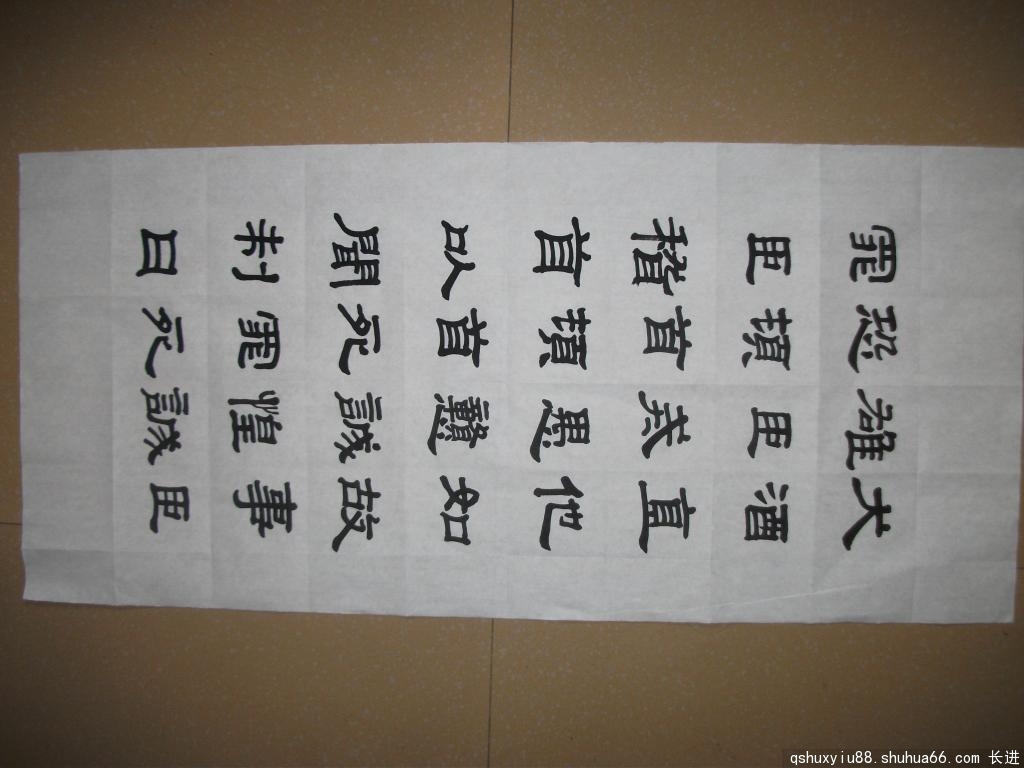 犬酒直他如故事臣
雄臣戒愚戇誠惶誠
恐頓首頓首死罪死
罪臣稽首以聞制曰
qshuxyiu88.shuhua66.com 长进